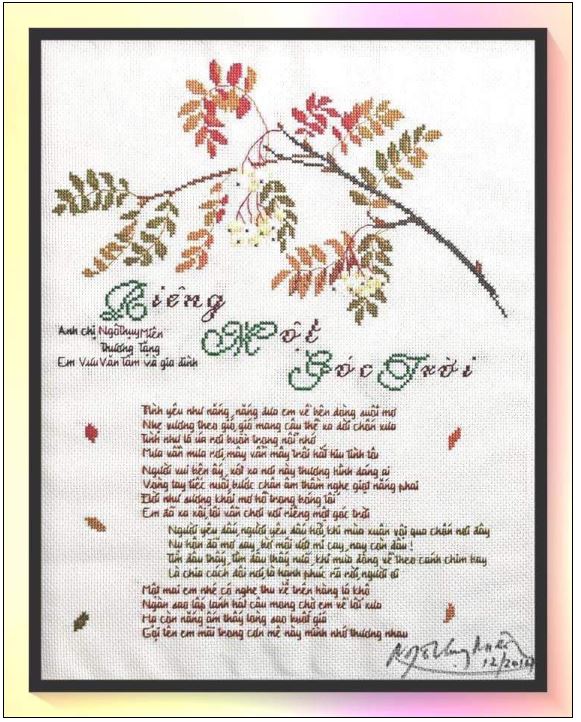 Riêng
Một
Góc Trời
Anh chị Ngô Thụy Miên
Thương Tặng
Em Vưu Văn Tâm và gia đình
Tình yêu như nắng, nắng đưa em về bên dòng suối mơ
Nhẹ vương theo gió, gió mang câu thề xa dời chốn xưa
Tình như lá úa rơi buồn trong nỗi nhớ
Mưa vẫn mưa rơi, mây vẫn mây trôi hắt hiu tình tôi
Người vui bên ấy, xót xa nơi này thương hình dáng ai
Vòng tay tiếc nuối, bước chân âm thầm nghe giọt nắng phai
Đời như sương khói mơ hồ trong bóng tối
Em đã xa xôi, tôi vẫn chơi vơi riêng một góc trời
Người yêu dấu, người yêu dấu hỡi, khi mùa xuân vội qua chốn nơi đây
Nụ hôn đã mơ say, bờ môi ướt mi cay, nay còn đâu !
Tìm đâu thấy, tìm đâu thấy nữa, khi mùa đông về theo cánh chim bay
Là chia cách đôi nơi, là hạnh phúc rã rời, người ơi
Một mai em nhé có nghe thu về trên hàng lá khô
Ngàn sao lấp lánh hát câu mong chờ em về lối xưa
Hạ còn nắng ấm thấy lòng sao buốt giá
Gọi tên em mãi trong cơn mê này mình nhớ thương nhau
12/2014